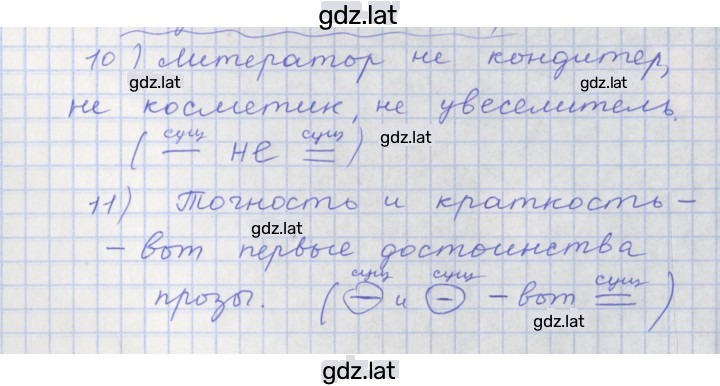 gdz.lat
10) Литератор не кондитер,
gdz.lat
gdz.lat
не косметик, не увеселитель.
сущ сущ
gdz.lat
( — не = )
11) Точность и краткость –
gdz.lat
– вот первые достоинства
сущ сущ сущ
прозы. ( — и — – вот = )
gdz.lat
gdz.lat